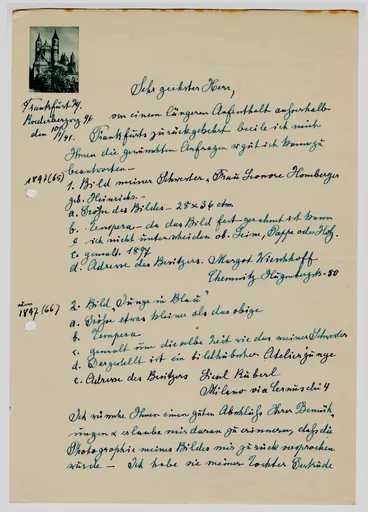 Sehr geehrter Herr,
Frankfurt
den 10/ 41.
von einem längeren Aufenthalt ausserhalb
Frankfurts zurückgekehrt beeile ich mich
Ihnen die gewünschten Anfragen so gut ich kann zu
beantworten –
1897 (65)
1. Bild meiner Schwester, Frau Leonore Homberger
geb. Heinrichs –
a. Größe des Bildes – 28 x 36 ctm
b. Tempera – da das Bild fest gerahmt ist kann
ich nicht unterscheiden ob Leim, Pappe oder Holz.
c. gemalt 1897
d. Adresse des Besitzers. Margot
Chemnitz 50
um
1897 (66)
2. Bild "Junge in Blau"
a. Größe etwas kleiner als das obige
b. Tempera
c. gemalt um dieselbe Zeit wie das meiner Schwester
d. Dargestellt ist ein bildhübscher Atelierjunge
e. Adresse des Besitzers
Milano via 4
Ich wünsche Ihnen einen guten Abschluß Ihrer Bemüh-
ungen & erlaube mir daran zu erinnern, dass die
Photographie meines Bildes mir zurück versprochen
wurde – Ich habe sie meiner Tochter Gertrude